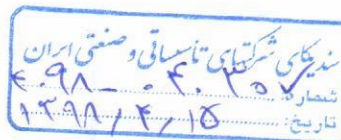 سندیکای شرکتهای تأسیساتی و صنعتی ایران
شماره:
تاریخ: ۱۳۹۸/۴/۱۵